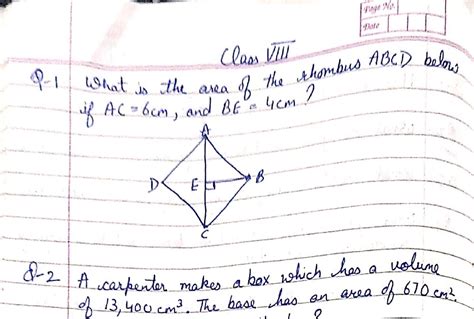 Page No.
Date
Class VIII
Q-1 What is the area of the rhombus ABCD below
if AC = 6cm, and BE = 4cm ?
A
D E B
C
Q-2 A carpenter makes a box which has a volume
of 13,400 cm³. The base has an area of 670 cm².